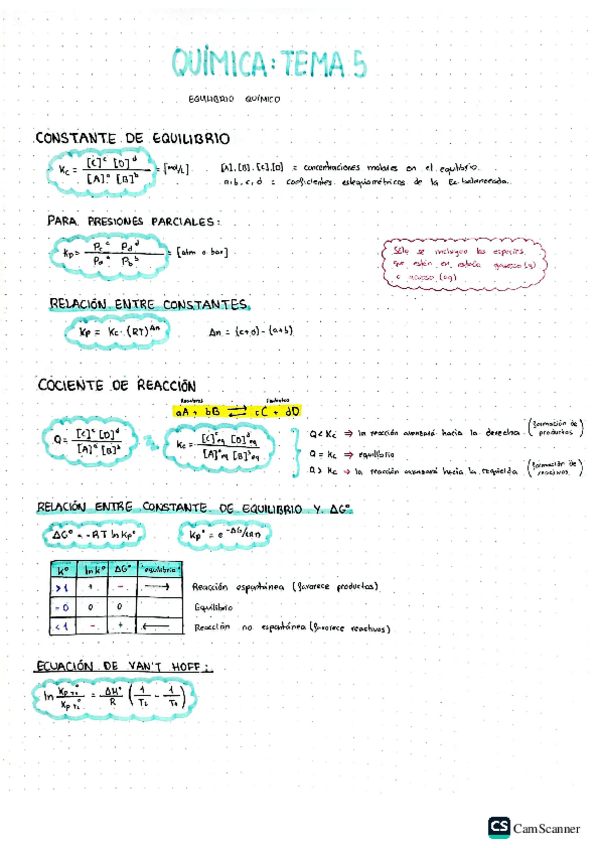 QUÍMICA: TEMA 5
EQUILIBRIO QUÍMICO
CONSTANTE DE EQUILIBRIO
Kc = [C]^c [D]^d / [A]^a [B]^b = [mol/L] [A], [B], [C], [D] = concentraciones molares en el equilibrio.
a, b, c, d = coeficientes estequiométricos de la Ec. balanceada.
PARA PRESIONES PARCIALES:
Kp = Pc^c Pd^d / Pa^a Pb^b = [atm o bar]
Sólo se incluyen las especies
que estén en estado gaseoso (g)
o acuoso (aq)
RELACIÓN ENTRE CONSTANTES
Kp = Kc · (RT)^Δn Δn = (c+d) - (a+b)
COCIENTE DE REACCIÓN
Reactivos Productos
aA + bB ⇌ cC + dD
Q = [C]^c [D]^d / [A]^a [B]^b
Kc = [C]^c eq [D]^d eq / [A]^a eq [B]^b eq
Q < Kc ⇒ la reacción avanzará hacia la derecha (formación de productos)
Q = Kc ⇒ equilibrio
Q > Kc ⇒ la reacción avanzará hacia la izquierda (formación de reactivos)
RELACIÓN ENTRE CONSTANTE DE EQUILIBRIO Y ΔG°
ΔG° = -RT ln Kp° Kp° = e^-ΔG/(RT)
K° ln K° ΔG° "equilibrio"
>1 + - → Reacción espontánea (favorece productos)
=0 0 0 Equilibrio
<1 - + ← Reacción no espontánea (favorece reactivos)
ECUACIÓN DE VAN'T HOFF:
ln Kp T2° / Kp T1° = ΔH° / R (1/T1 - 1/T2)
CS CamScanner